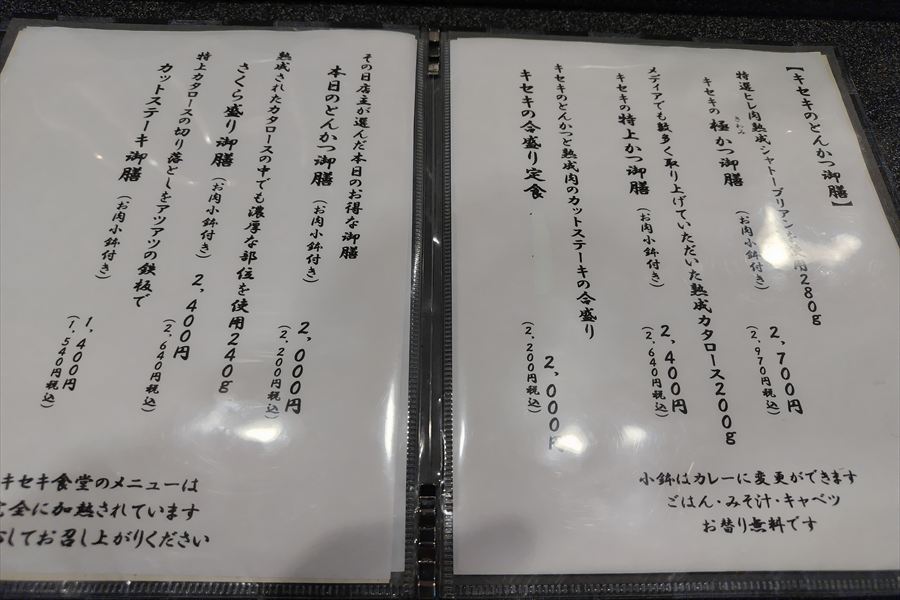 【キセキのとんかつ御膳】
特選ヒレ肉熟成シャトーブリアン 用280g
キセキの極かつ御膳(お肉小鉢付き) 2,700円
きわみ
(2,970円税込)
メディアでも数多く取り上げていただいた熟成カタロース200g
キセキの特上かつ御膳(お肉小鉢付き) 2,400円
(2,640円税込)
キセキのとんかつと熟成肉のカットステーキの合盛り
キセキの合盛り定食 2,000円
(2,200円税込)
小鉢はカレーに変更ができます
ごはん・みそ汁・キャベツ
お替り無料です
その日店主が選んだ本日のお得な御膳
本日のとんかつ御膳(お肉小鉢付き) 2,000円
(2,200円税込)
熟成されたカタロースの中でも濃厚な部位を使用240g
さくら盛り御膳(お肉小鉢付き) 2,400円
(2,640円税込)
特上カタロースの切り落としをアツアツの鉄板で
カットステーキ御膳(お肉小鉢付き) 1,400円
(1,540円税込)
キセキ食堂のメニューは
全に加熱されています
してお召し上がりください